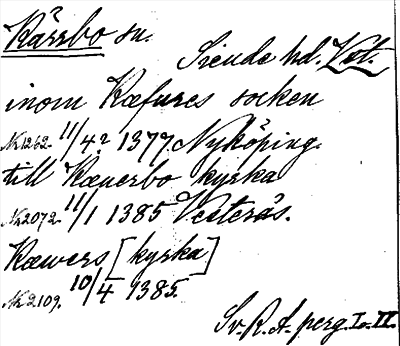 Kärrbo sn.
Siende hd. Vstm.
inom Kæfures socken
№ 1262. 11/4? 1377. Nyköping.
till Kæuerbo kyrka
№ 2072. 11/1 1385 Vesterås.
Kæwers [kyrka]
№ 2109. 10/4 1385.
Sv. R. A. perg. I. o. II.